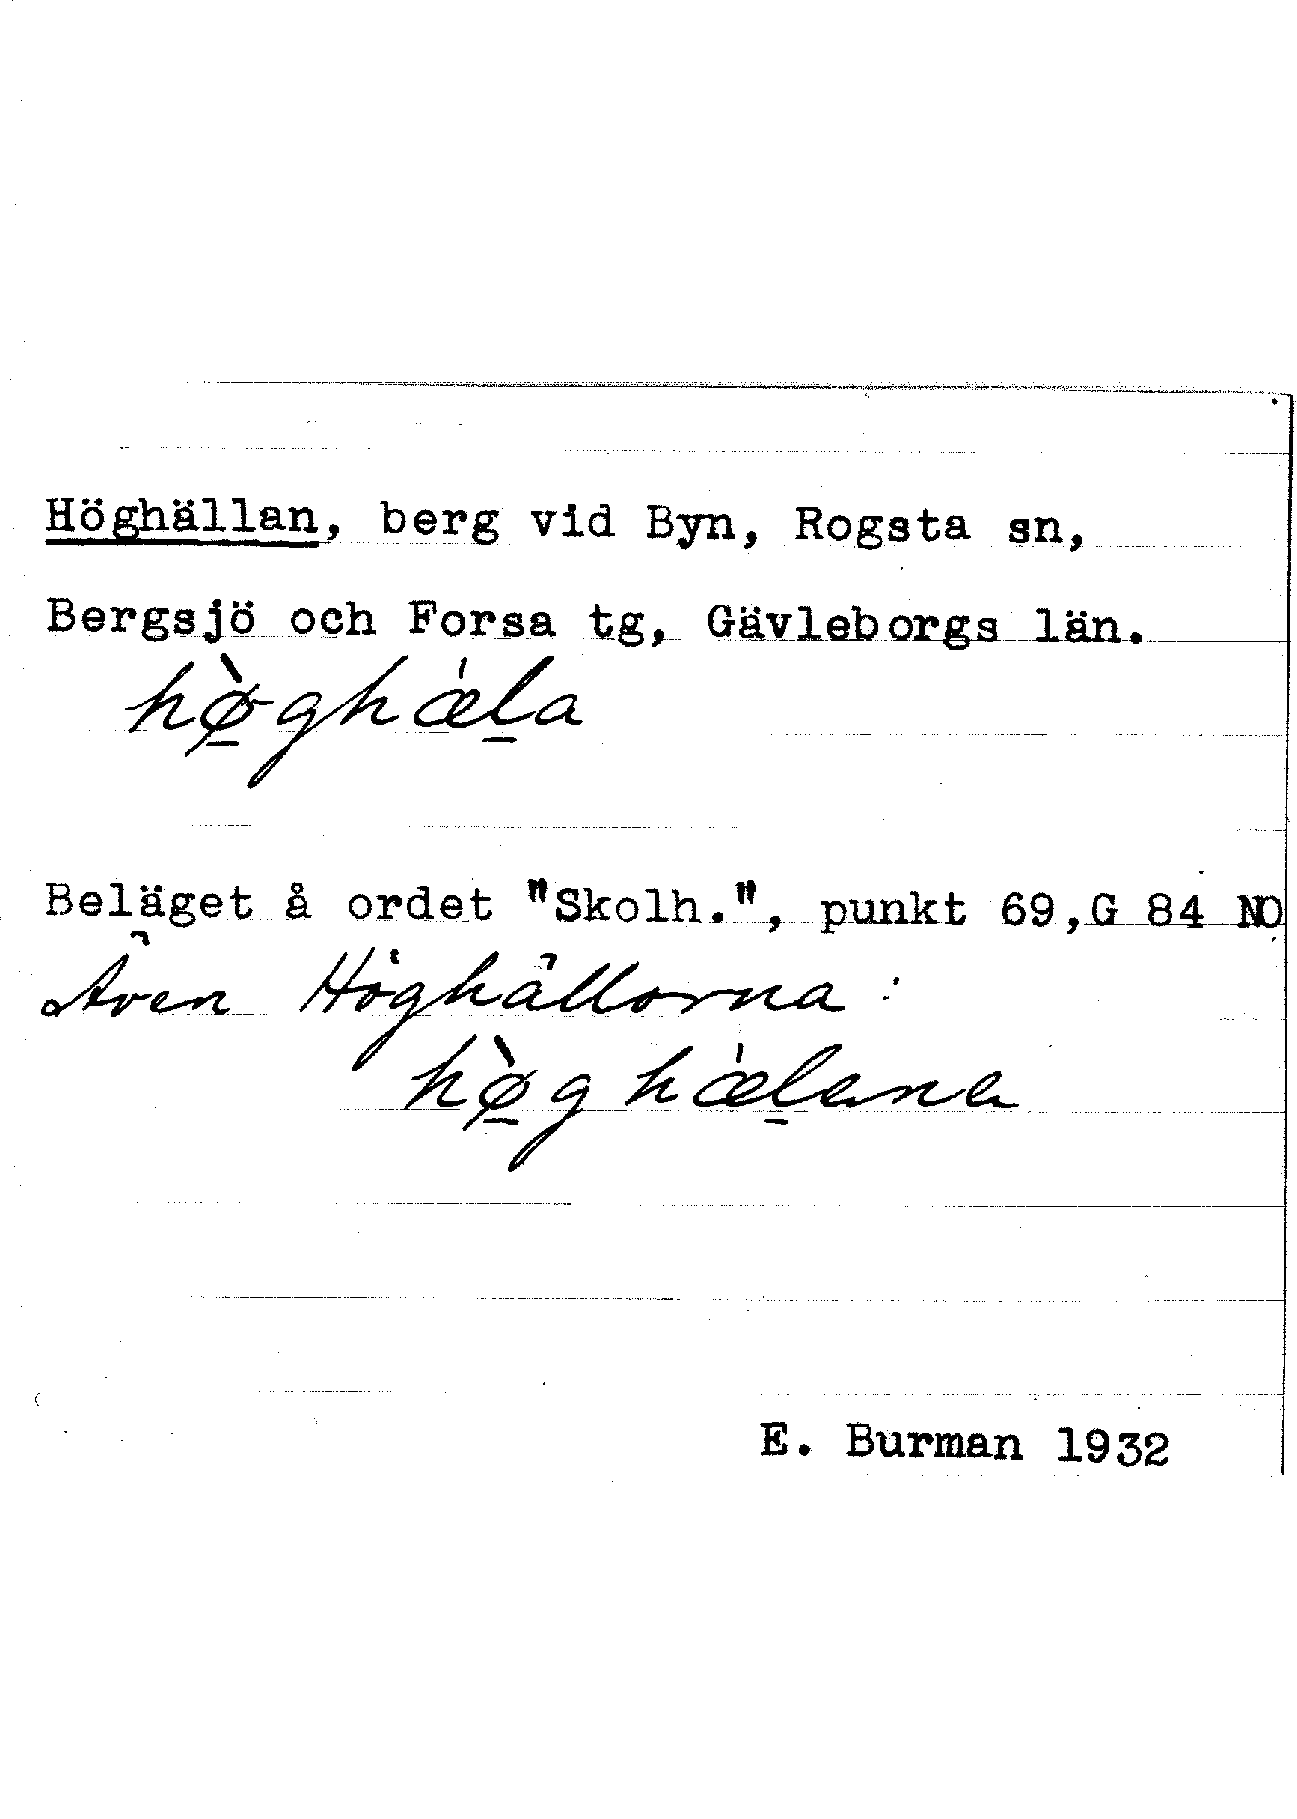 Höghällan, berg vid Byn, Rogsta sn,
Bergsjö och Forsa tg, Gävleborgs län.
hø̀ghǽla
Beläget å ordet "Skolh.", punkt 69, G 84 NO
Även Höghällorna:
hø̀ghǽlana
E. Burman 1932